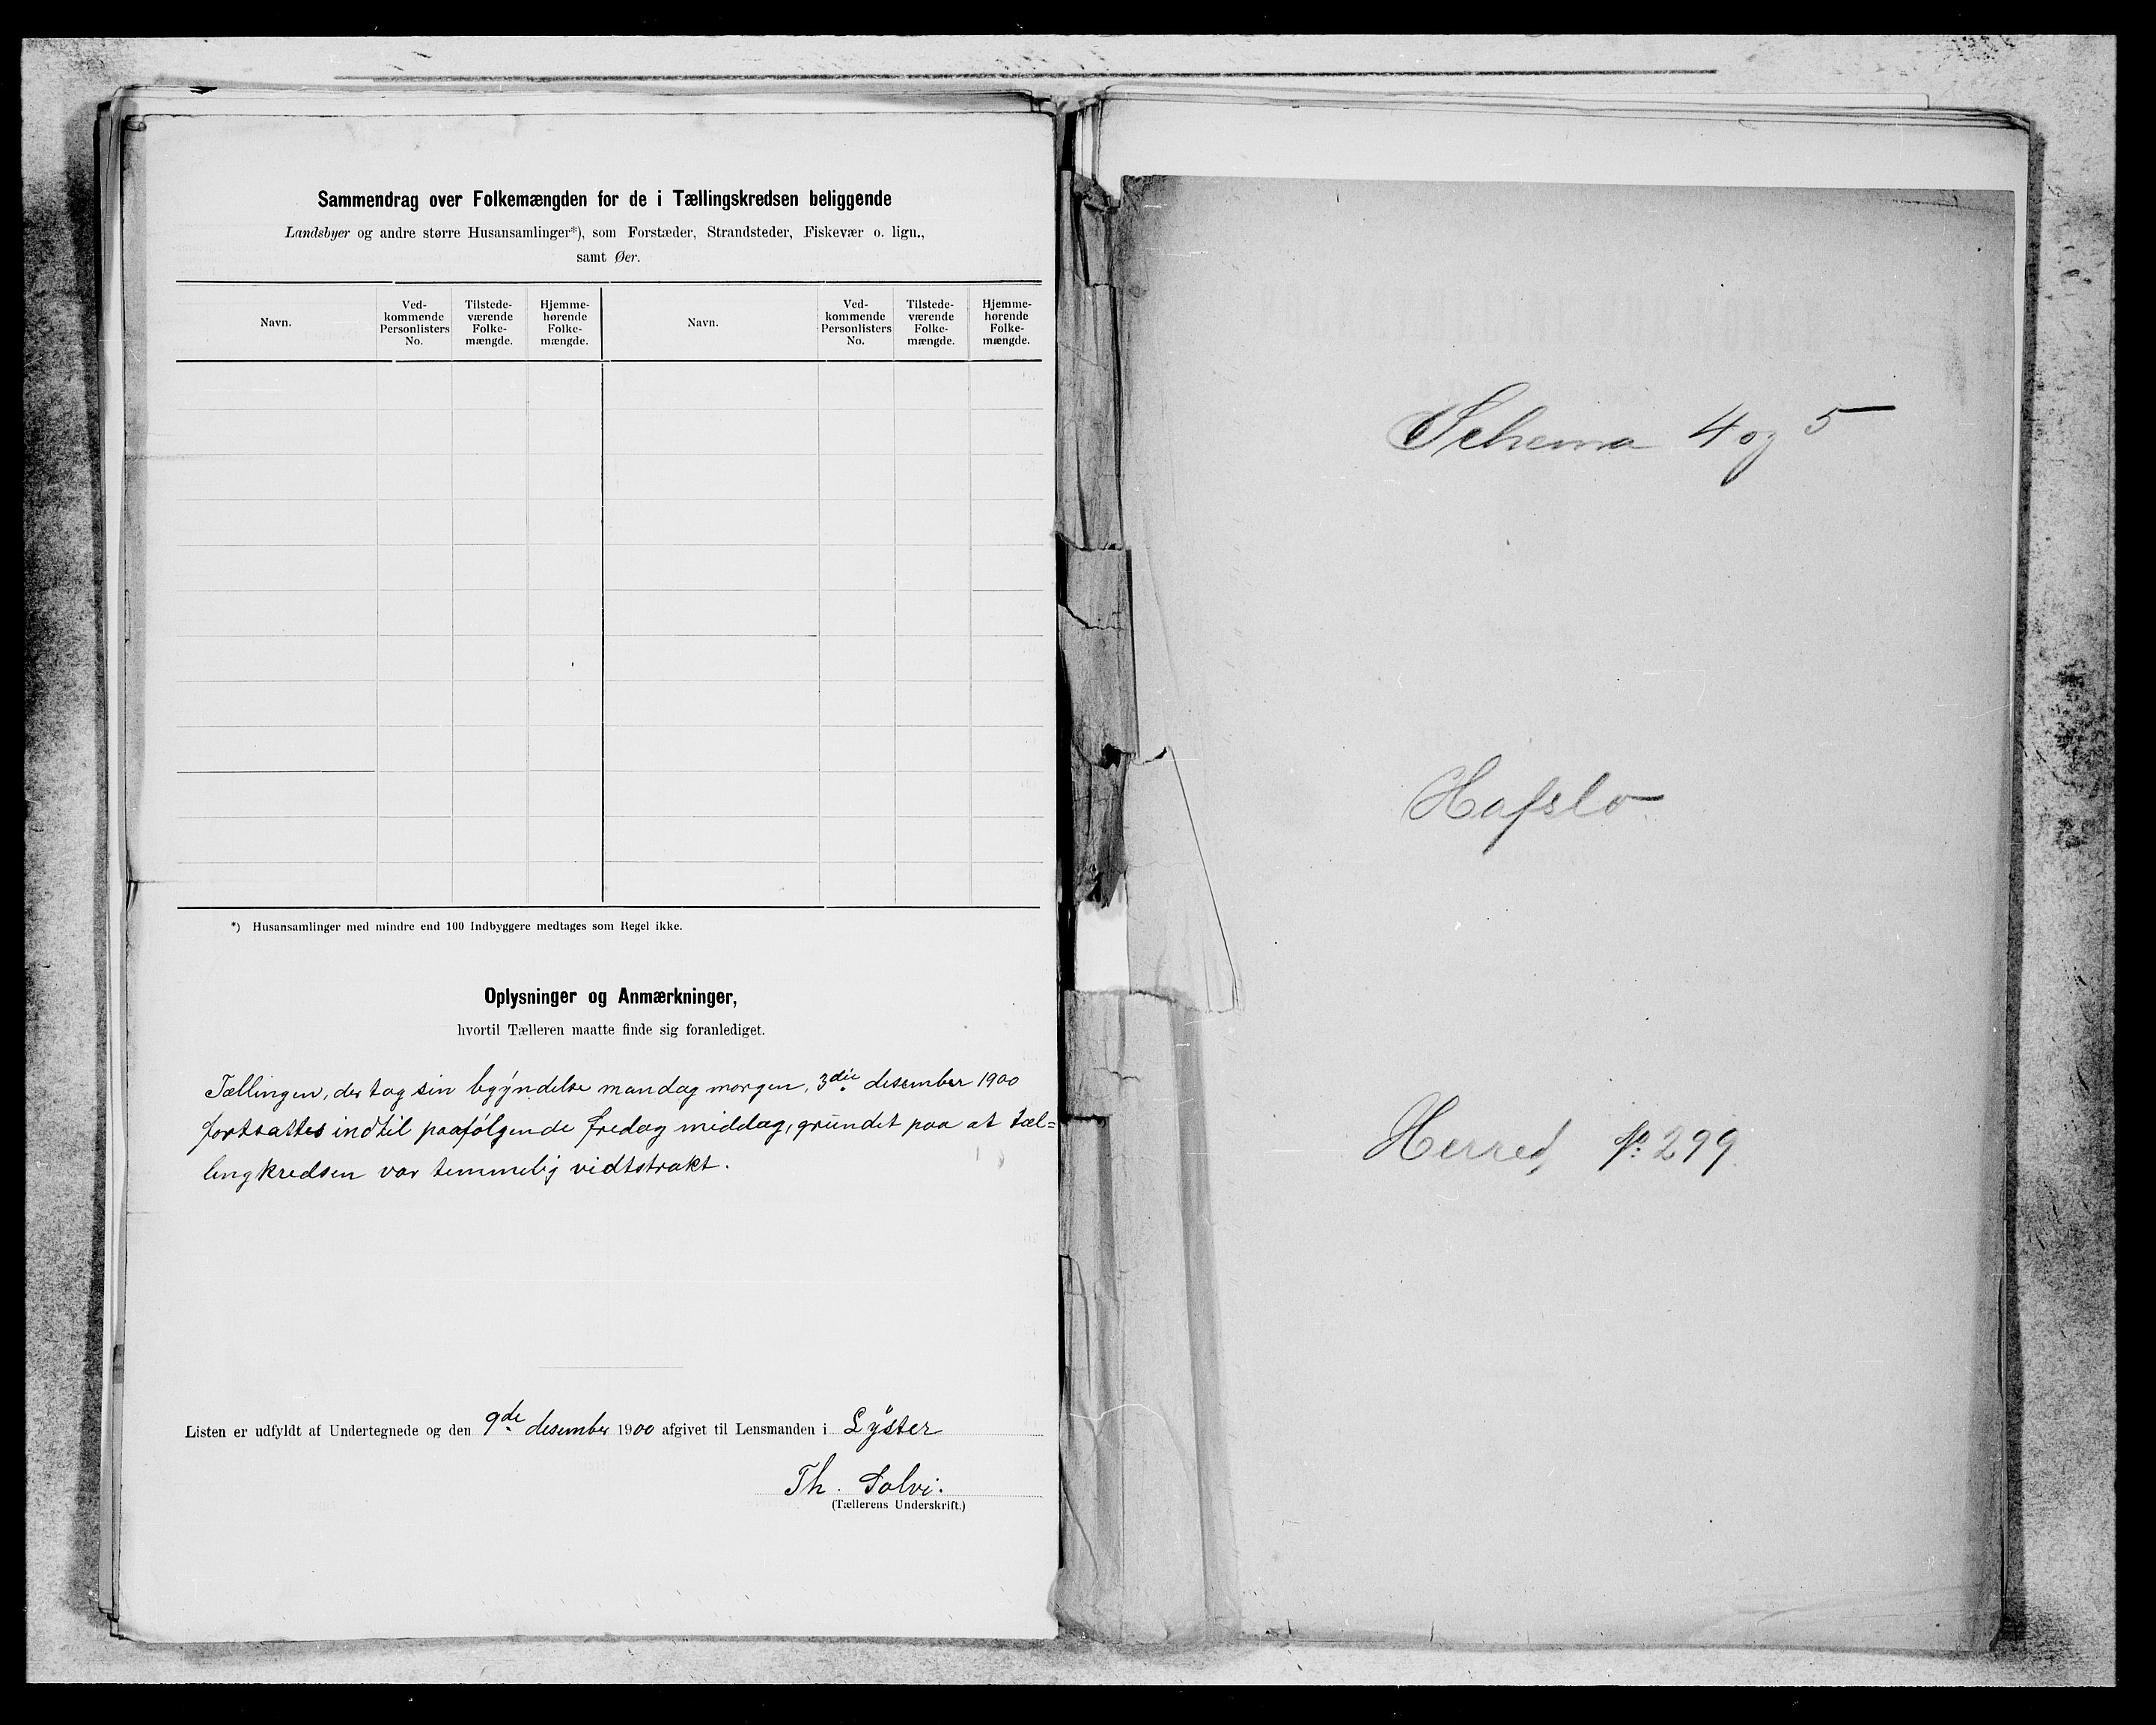 Sammendrag over Folkemængden for de i Tællingskredsen beliggende
Landsbyer og andre større Husansamlinger*), som Forstæder, Strandsteder, Fiskevær o. lign.,
samt Øer.
Navn.
Ved-
kommende
Personlisters
No.
Tilstede-
værende
Folke-
mængde.
Hjemme-
hørende
Folke-
mængde.
Navn.
Ved-
kommende
Personlisters
No.
Tilstede-
værende
Folke-
mængde.
Hjemme-
hørende
Folke-
mængde.
*) Husansamlinger med mindre end 100 Indbyggere medtages som Regel ikke.
Oplysninger og Anmærkninger,
hvortil Tælleren maatte finde sig foranlediget.
Tællingen, der tog sin begyndelse mandag morgen, 3die desember 1900
fortsattes indtil paafølgende fredag middag, grundet paa at tæl=
lingkredsen var temmelig vidtstrakt.
Listen er udfyldt af Undertegnede og den 9de desember 1900 afgivet til Lensmanden i Lyster
Th. Solvi.
(Tællerens Underskrift.)
Schema 4 og 5
Hafslo
Herred No: 299.